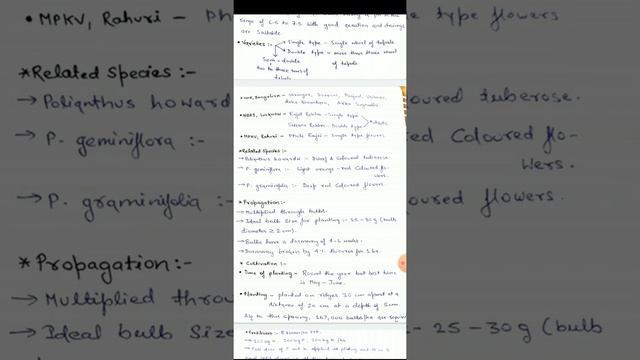 range of 6.5 to 7.5 with good aeration and drainage
are suitable.
• Varieties :- → Single type - Single whorl of tepals
→ Double type - more than three whorl
of tepals
Semi-double
two to three rows of
tepals
Shringar, Suvasini, Prajwal, Vaibhav,
Arka Nirantara, Arka Sugandhi
• NBRI, Lucknow - Rajat Rekha - Single type
Swarna Rekha - Double type
• MPKV, Rahuri - Phule Rajani - Single type flowers
*Related Species :-
→ Polianthus howardii :- Dwarf & Coloured tuberose.
→ P. geminiflora :- Light orange-red Coloured flo-
wers.
→ P. graminifolia :- Deep red Coloured flowers.
*Propagation:-
→ Multiplied through bulbs.
→ Ideal bulb Size for planting :- 25-30g (bulb
diameter ≥ 2 cm).
→ Bulbs have a dormancy of 4-6 weeks.
→ Dormancy broken by 4% thiourea for 1 hr.
* Cultivation :-
• Time of planting - Round the year but best time
is May - June.
• Planting - planted on ridges 30 cm apart at a
distance of 20 cm at a depth of 5cm.
to this spacing, 167,000 bulbs/ha are required
• MPKV, Rahuri -
type flowers
*Related Species :-
→ Polianthus howard
oured tuberose.
→ P. geminiflora :-
ed Coloured flo-
wers.
→ P. graminifolia :-
oured flowers.
*Propagation:-
→ Multiplied throu
→ Ideal bulb Size
- 25-30g (bulb